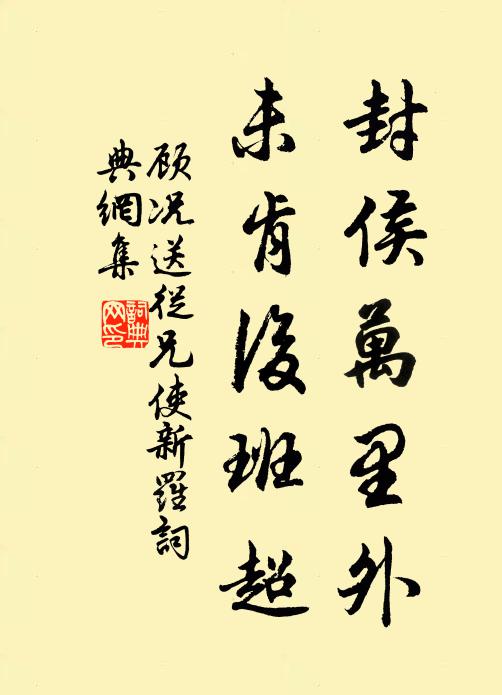 封侯萬里外
未肯後班超
顾况送從兄使新羅詞
典網集
詞典网印